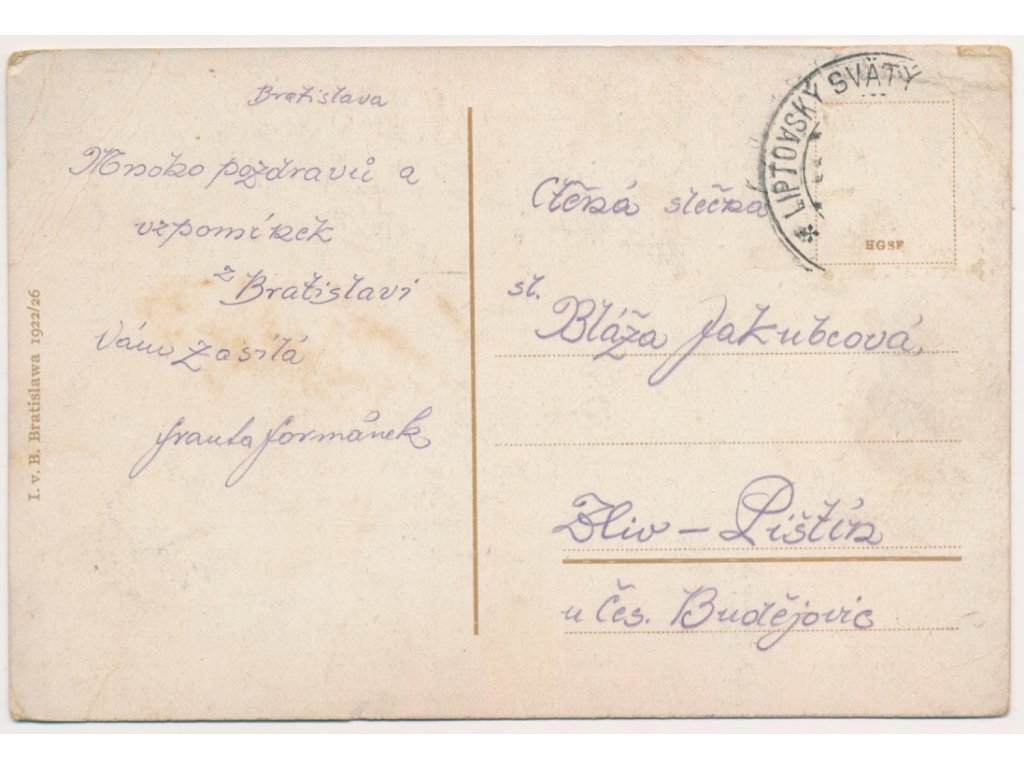 Bratislava
Mnoho pozdravů a
vzpomínek
z Bratislavi
Vám zasílá
Franta Formánek
I. v. B. Bratislawa 1922/26
* LIPTOVSKÝ SVÄTÝ
HGSF
Ctěná slečna
sl.
Bláža Jakubcová,
Zliv – Pištín
u Čes. Budějovic